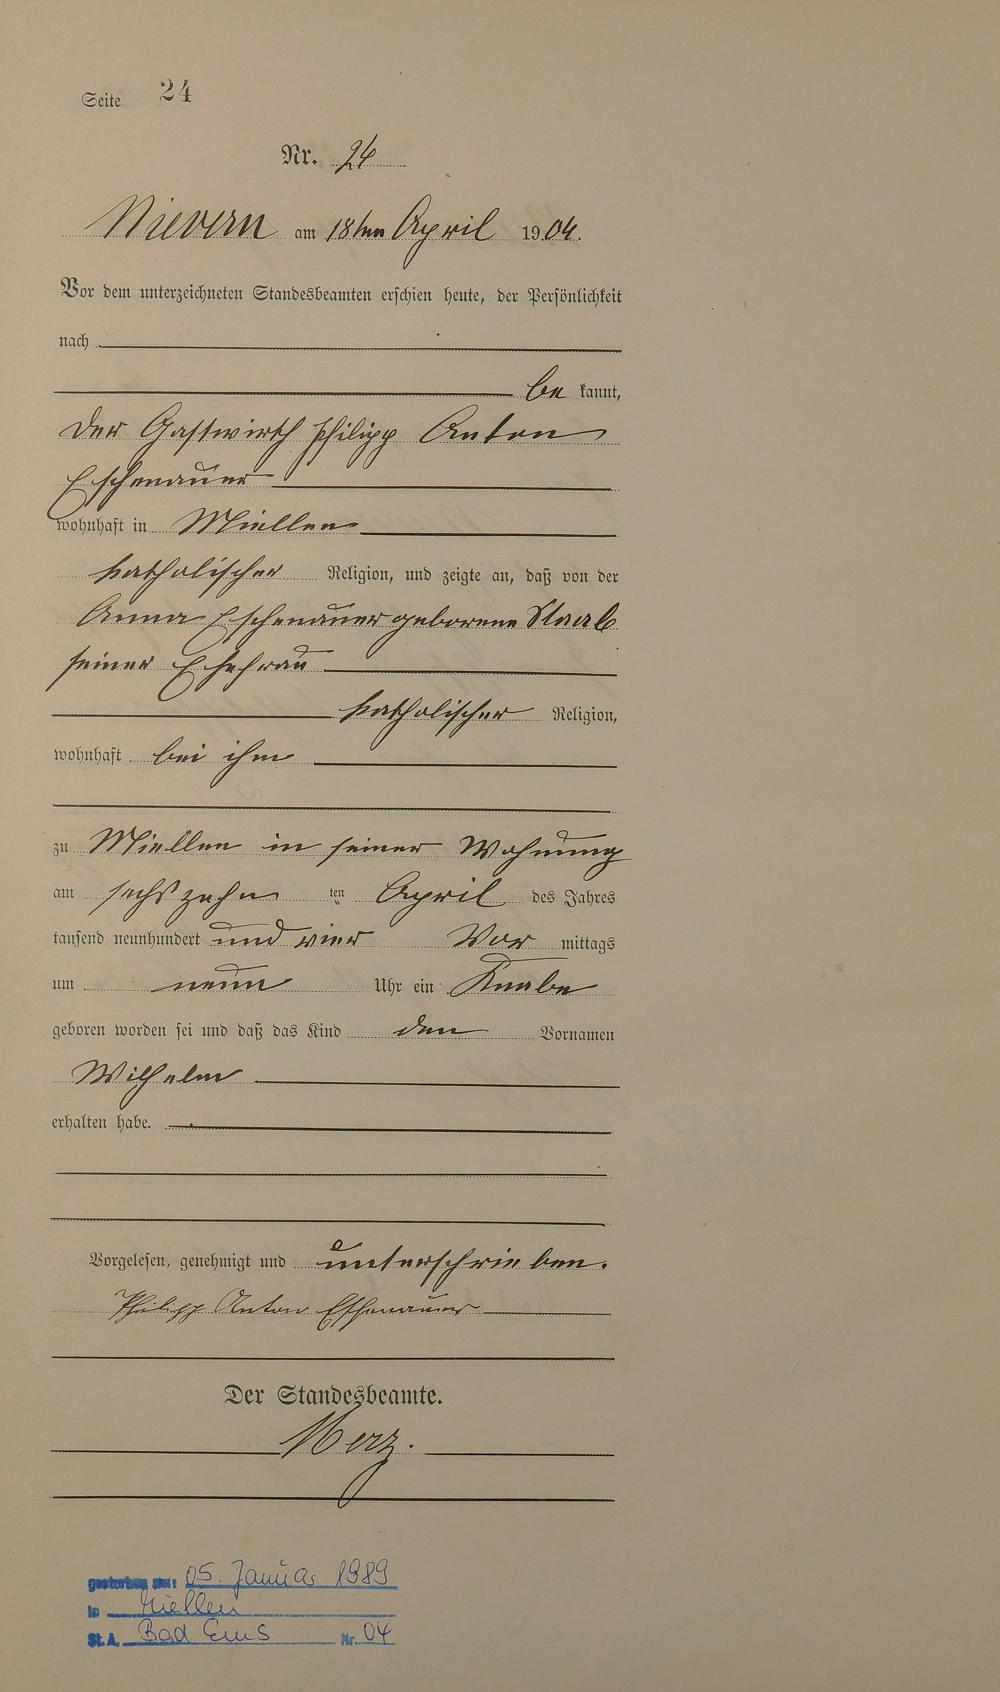 Seite 24
Nr. 24
Nievern am 18ten April 1904.
Vor dem unterzeichneten Standesbeamten erschien heute, der Persönlichkeit
nach
be kannt,
der Gastwirth Philipp Anton
Eschenauer
wohnhaft in Miellen
katholischer Religion, und zeigte an, daß von der
Anna Eschenauer geborene Staab
seiner Ehefrau
katholischer Religion,
wohnhaft bei ihm
zu Miellen in seiner Wohnung
am sechszehn ten April des Jahres
tausend neunhundert und vier Vor mittags
um neun Uhr ein Knabe
geboren worden sei und daß das Kind den Vornamen
Wilhelm
erhalten habe.
Vorgelesen, genehmigt und unterschrieben.
Philipp Anton Eschenauer
Der Standesbeamte.
Merz.
gestorben am: 05. Januar 1989
in Miellen
St.A. Bad Ems Nr. 04